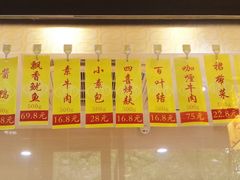 酱鸭
8元
飘香鱿鱼
500g
69.8元
素牛肉
500g
16.8元
小素包
500g
28元
四喜烤麸
500g
16.8元
百叶结
500g
16.8元
咖喱牛肉
500g
75元
裙带菜
500g
22.8元